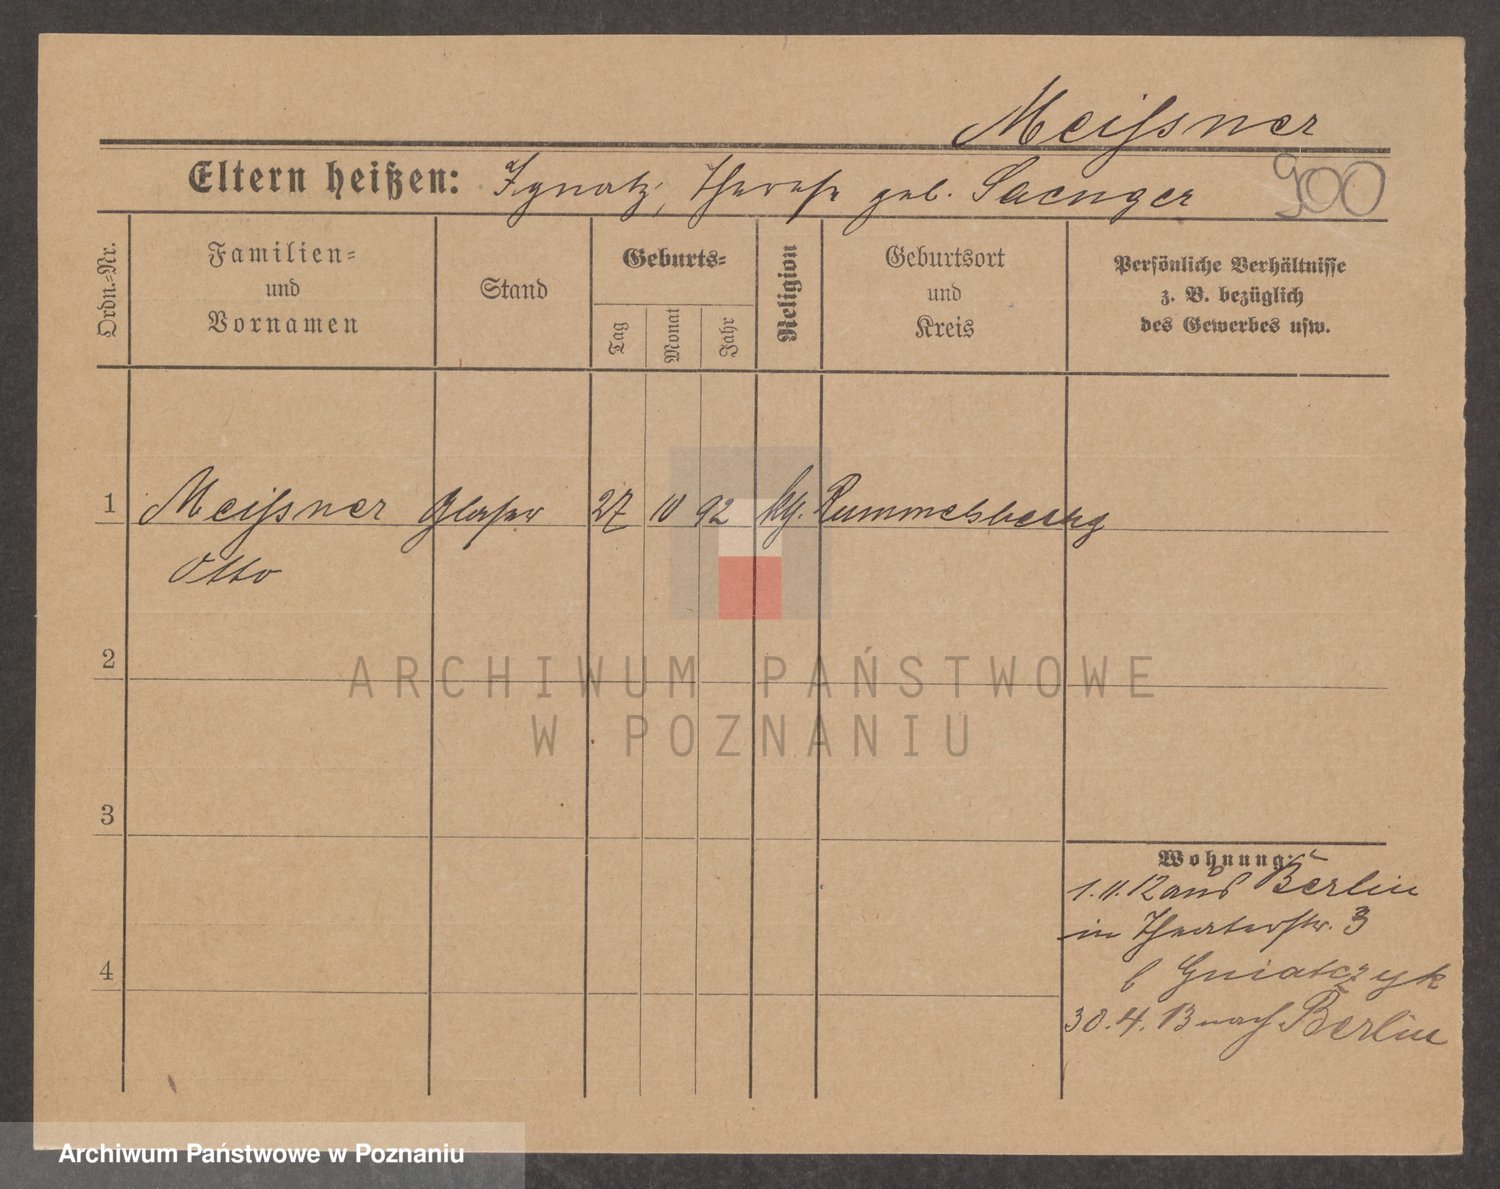 Meißner
Eltern heißen: Ignatz, Therese geb. Saenger
900
Ordn.-Nr.
Familien-
und
Vornamen
Stand
Geburts-
Tag
Monat
Jahr
Religion
Geburtsort
und
Kreis
Persönliche Verhältnisse
z. B. bezüglich
des Gewerbes usw.
1 Meißner Glaser 27 10 92 Rummelsburg
Otto
2
3
4
Wohnung:
1. 11. 12 aus Berlin
in Theaterstr. 3
b Gniatczyk
30. 4. 13 nach Berlin
ARCHIWUM PAŃSTWOWE
W POZNANIU
Archiwum Państwowe w Poznaniu